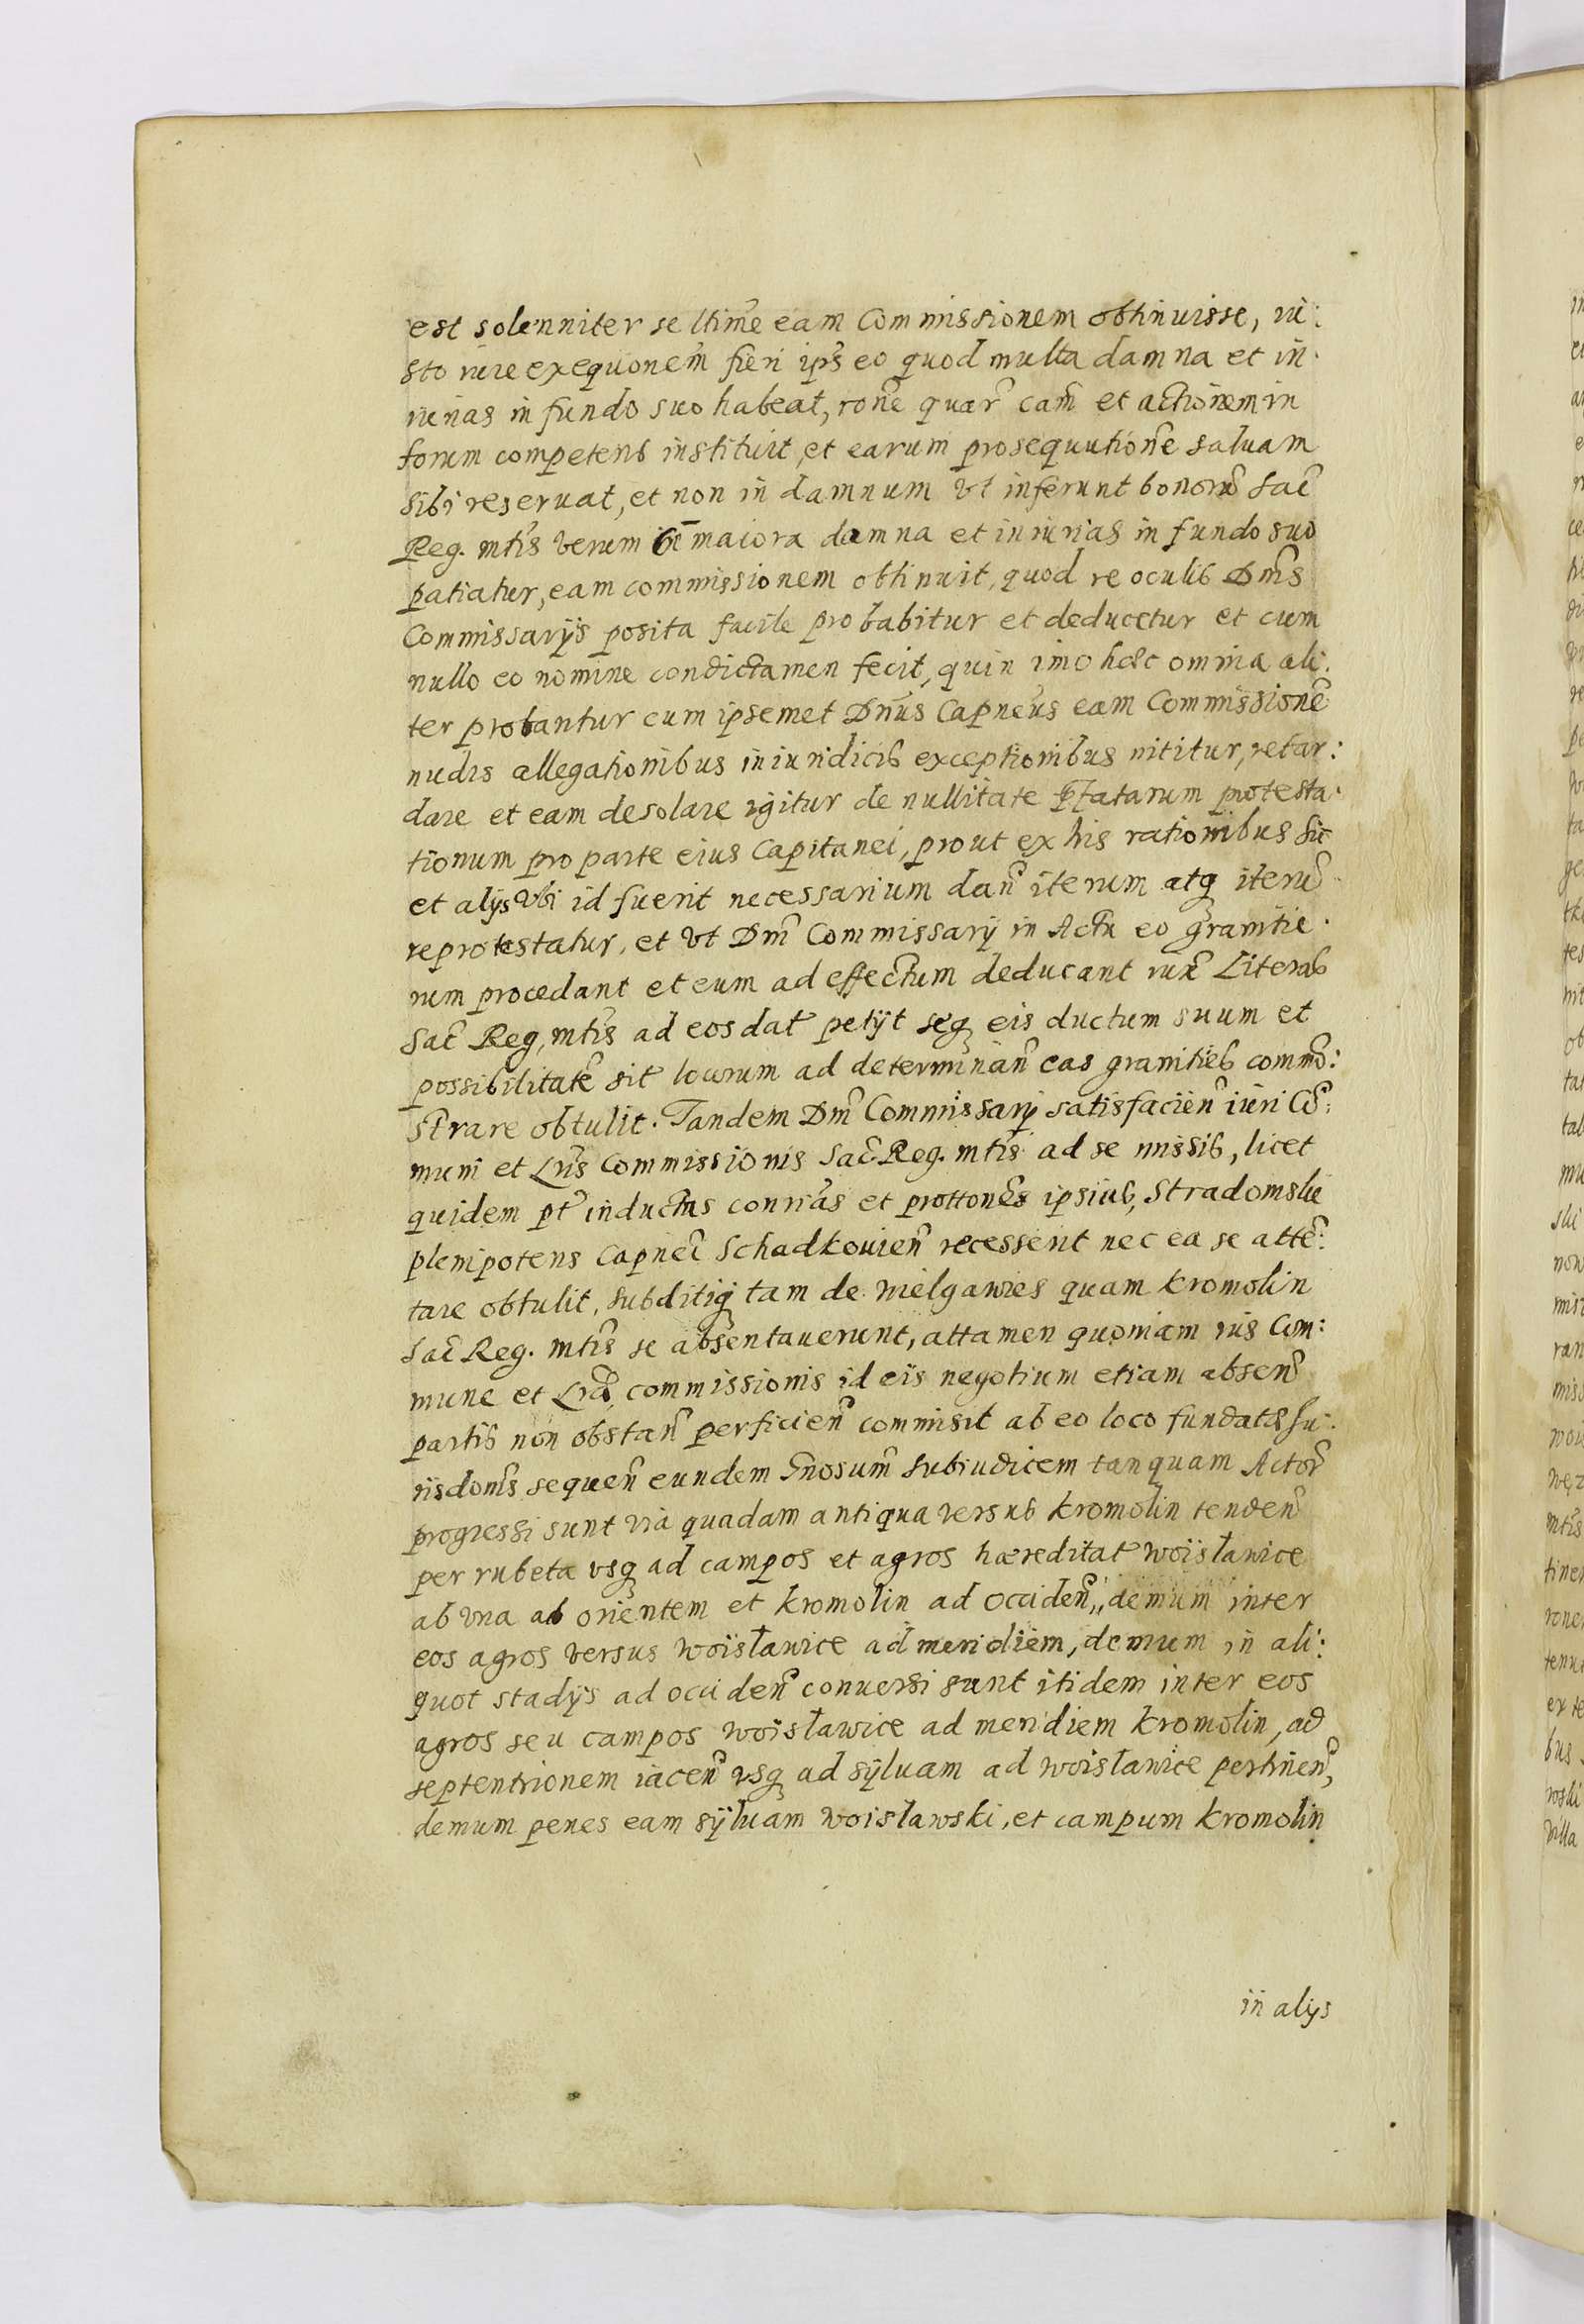 est solenniter se ltime eam Commissionem obtinuisse, iu:
sto iure exequionem fieri ips eo quod multa damna et in
iurias in fundo suo habeat, rone quar cam et actionem in
forum competens instituit, et earum prosequutione saluam
sibi reseruat, et non in damnum vt inferunt bonoru Sac
Reg. mtis verum maiora damna et iniurias in fundo suo
patiatur, eam commissionem obtinuit, quod re oculis Dnis
Commissarijs posita facile probabitur et deducetur et cum
nullo eo nomine condictamen fecit, quin imo hæc omnia ali:
ter probantur cum ipsemet Dnus Capneus eam Commissione
nudis allegationibus iniuridicis exceptionibus nititur, retar:
dare et eam desolare igitur de nullitate protesta:
tionum pro parte eius Capitanei, prout ex his rationibus sic
et alijs vbi id fuerit necessarium dan iterum atq iteru
reprotestatur, et vt Dni Commissarij in Actu eo granitie:
rum procedant et eum ad effectum deducant iux Literas
Sac Reg. mtis ad eos dat petijt seq eis ductum suum et
possibilitate sit locorum ad determinan eas granities commo:
strare obtulit. Tandem Dni Commissarij satisfacien iuri Co:
muni et Lris Commissionis Sac Reg. mtis ad se missis, licet
quidem pt inductus conrias et prottones ipsius, Stradomski
plenipotens Capnei Schadkouien recesserit nec ea se atte:
tare obtulit, subditiq tam de wielgawies quam kromolin
Sac Reg. mtis se absentauerunt, attamen quoniam ius Com:
mune et Lra commissionis id eis negotium etiam absen
partis non obstan perficien commisit ab eo loco fundatæ Iu:
risdonis sequen eundem Gnosum Subiudicem tanquam Actor
progressi sunt via quadam antiqua versus kromolin tenden
per rubeta vsq ad campos et agros hæreditat woisławice
ab vna ab orientem et kromolin ad occiden, demum inter
eos agros versus woisławice ad meridiem, demum in ali:
quot stadijs ad occiden conuersi sunt itidem inter eos
agros seu campos woisławice ad meridiem kromolin, ad
septentrionem iacen vsq ad syluam ad woisławice pertinen,
demum penes eam syluam woisławski, et campum kromolin
in alijs